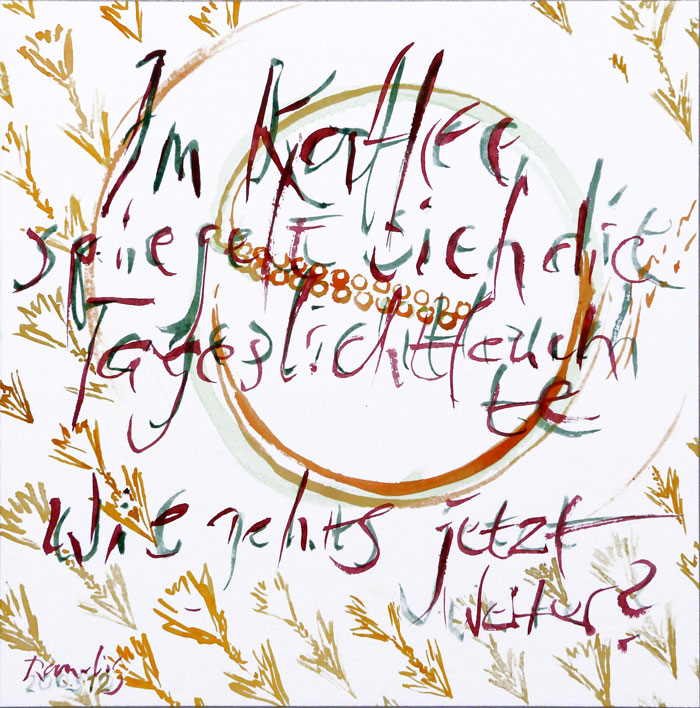 Im Kaffee,
spiegelt sich die
Tageslichtleuch
te
wie geht's jetzt
weiter?